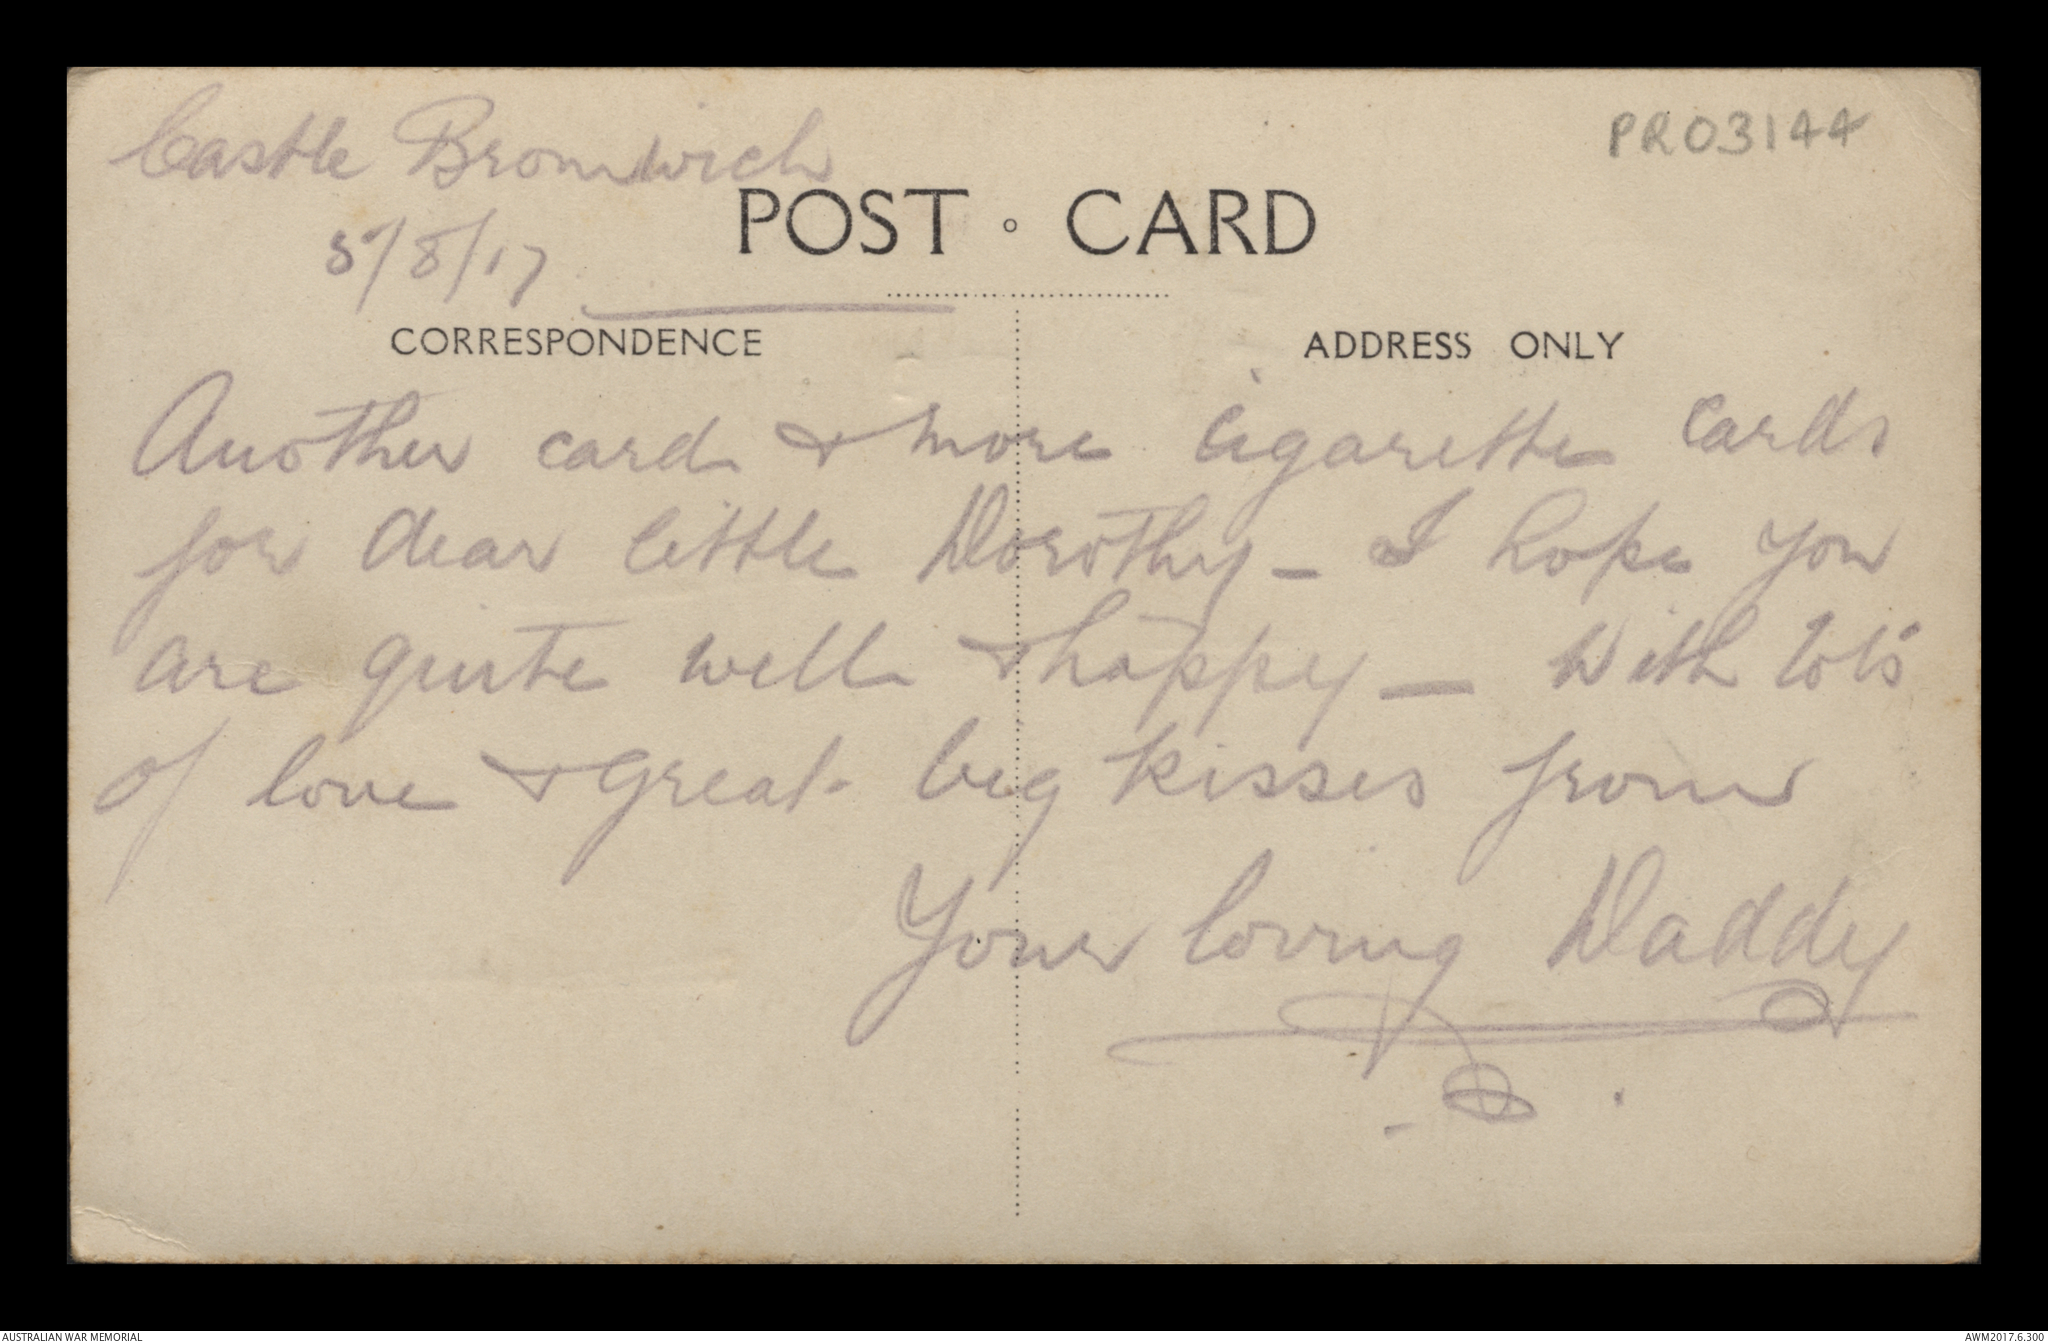 Castle Bromwich
PR03144
5/8/17
POST CARD
CORRESPONDENCE
ADDRESS ONLY
Another card & more cigarette cards
for dear little Dorothy - I hope you
are quite well & happy - With lots
of love & great big kisses from
Your loving Daddy
AUSTRALIAN WAR MEMORIAL
AWM2017.6.300